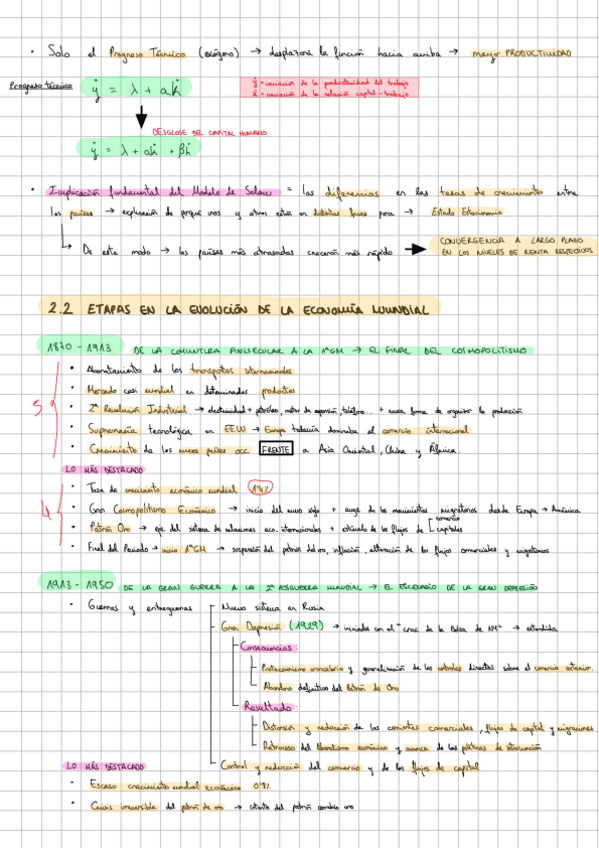 • Solo el Progreso Técnico (exógeno) → desplazará la función hacia arriba → mayor PRODUCTIVIDAD
Progreso técnico ẏ = λ + αk̇
ẏ = variación de la productividad del trabajo
k̇ = variación de la relación capital-trabajo
DESGLOSE DEL CAPITAL HUMANO
ẏ = λ + αk̇ + βḣ
• Implicación fundamental del Modelo de Solow = las diferencias en las tasas de crecimiento entre
los países → explicación de porqué unos y otros están en distintas fases para → Estado Estacionario
↳ De este modo → los países más atrasados crecerán más rápido → CONVERGENCIA A LARGO PLAZO
EN LOS NIVELES DE RENTA RESPECTIVOS
2.2 ETAPAS EN LA EVOLUCIÓN DE LA ECONOMÍA MUNDIAL
1870 - 1913 DE LA COYUNTURA FINISECULAR A LA 1ªGM → EL FINAL DEL COSMOPOLITISMO
• Abaratamiento de los transportes internacionales
• Mercado casi mundial en determinados productos
5
• 2ª Revolución Industrial → electricidad + petróleo, motor de explosión, teléfono... + nueva forma de organizar la producción
• Supremacía tecnológica en EEUU → Europa todavía dominaba el comercio internacional
• Crecimiento de los nuevos países occ. FRENTE a Asia Oriental, China y África.
LO MÁS DESTACADO
• Tasa de crecimiento económico mundial 1'4%
4
• Gran Cosmopolitismo Económico → inicio del nuevo siglo + auge de los movimientos migratorios desde Europa → América
• Patrón Oro → eje del sistema de relaciones eco. internacionales + estímulo de los flujos de [comercio
capitales
• Final del Periodo → inicio 1ªGM → suspensión del patrón del oro, inflación, alteración de los flujos comerciales y migratorios
1913 - 1950 DE LA GRAN GUERRA A LA 2ª POSGUERRA MUNDIAL → EL ESCENARIO DE LA GRAN DEPRESIÓN
• Guerras y entreguerras
Nuevo sistema en Rusia
Gran Depresión (1929) → iniciada con el "crac de la Bolsa de NY" → extendida
Consecuencias:
Proteccionismo arancelario y generalización de los controles directos sobre el comercio exterior.
Abandono definitivo del Patrón de Oro
Resultado:
Distorsión y reducción de las corrientes comerciales, flujos de capital y migraciones
Retroceso del liberalismo económico y avance de las políticas de intervención
Control y reducción del comercio y de los flujos de capital
LO MÁS DESTACADO
• Escaso crecimiento mundial económico 0'9%
• Crisis irreversible del patrón de oro → intento del patrón cambio oro